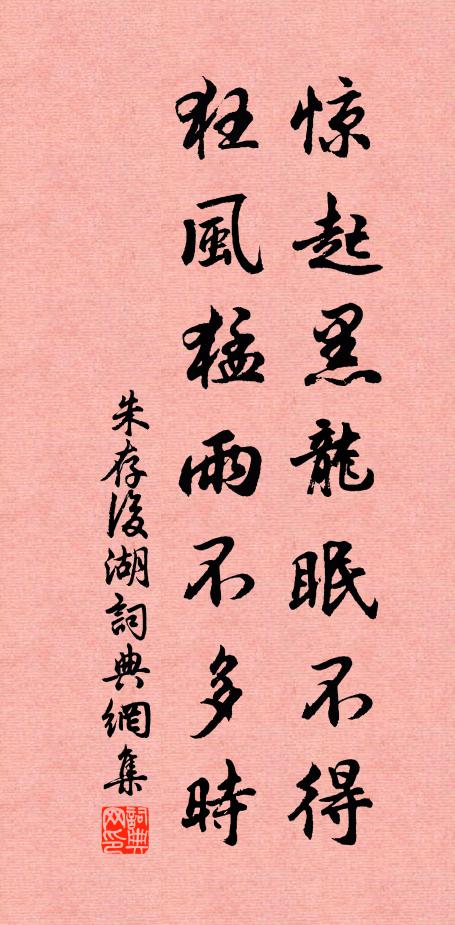 惊起黑龍眠不得
狂風猛雨不多時
朱存後湖詞典網集
詞典网印